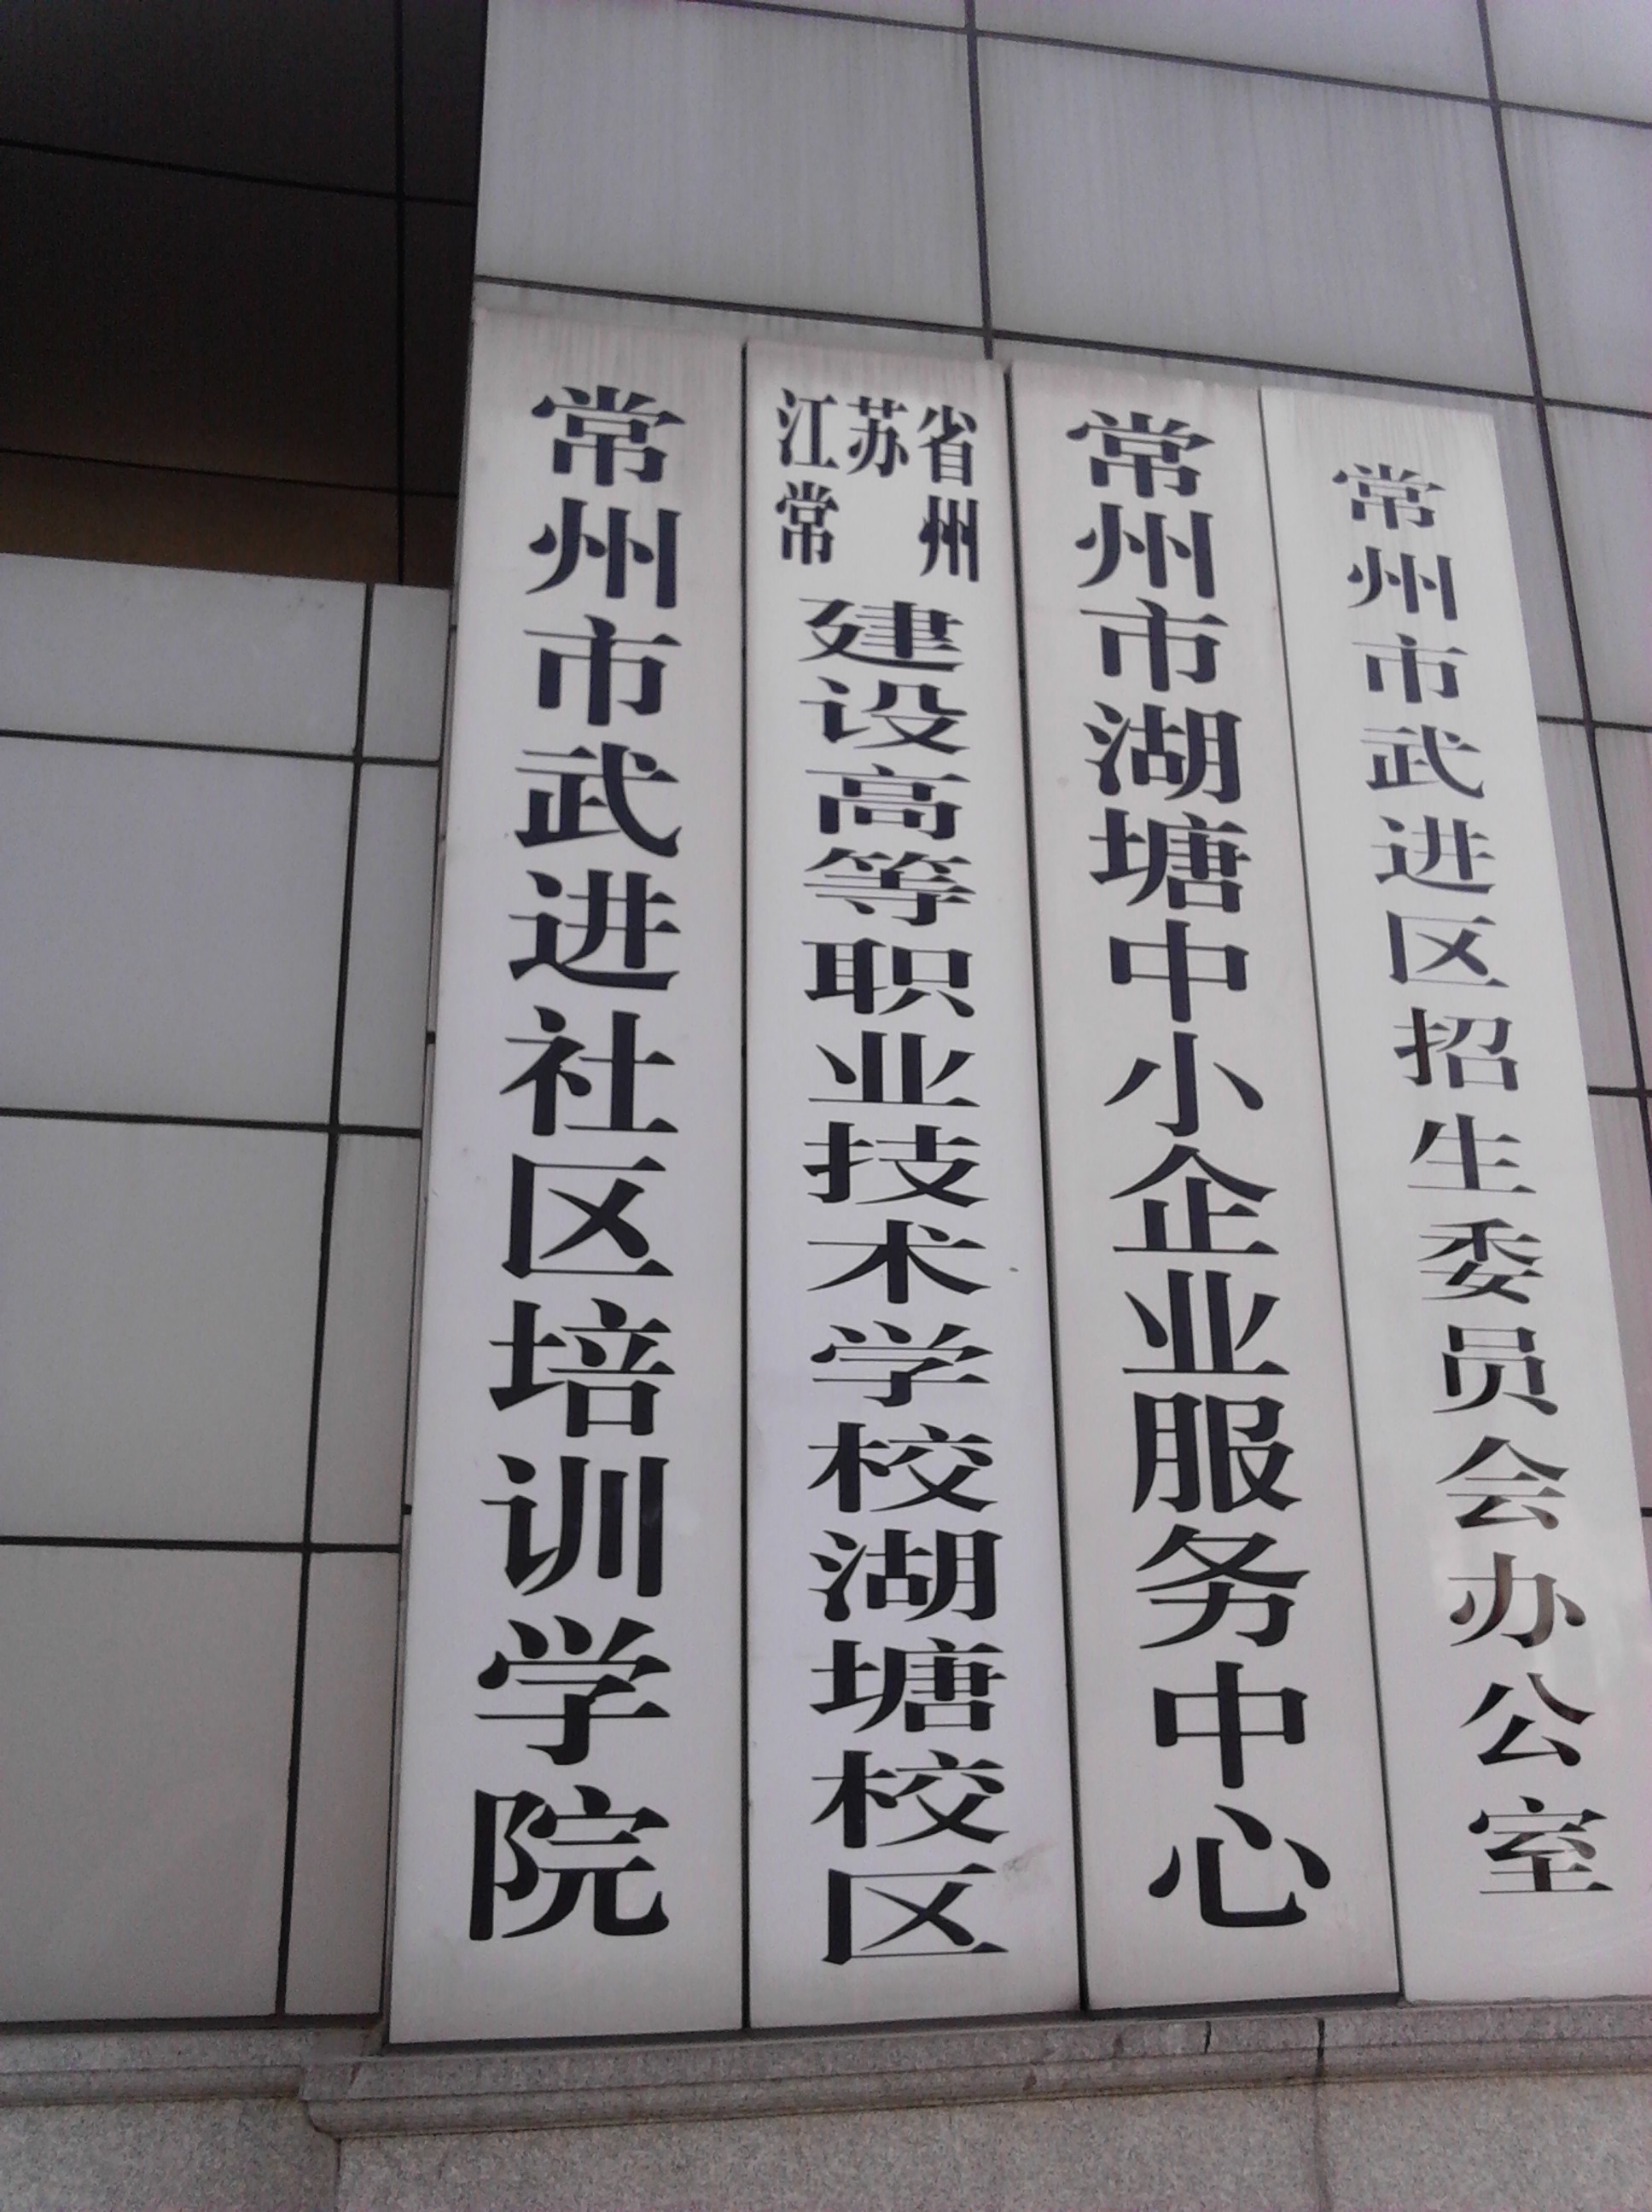 常州市武进社区培训学院
江苏省
常州
建设高等职业技术学校湖塘校区
常州市湖塘中小企业服务中心
常州市武进区招生委员会办公室